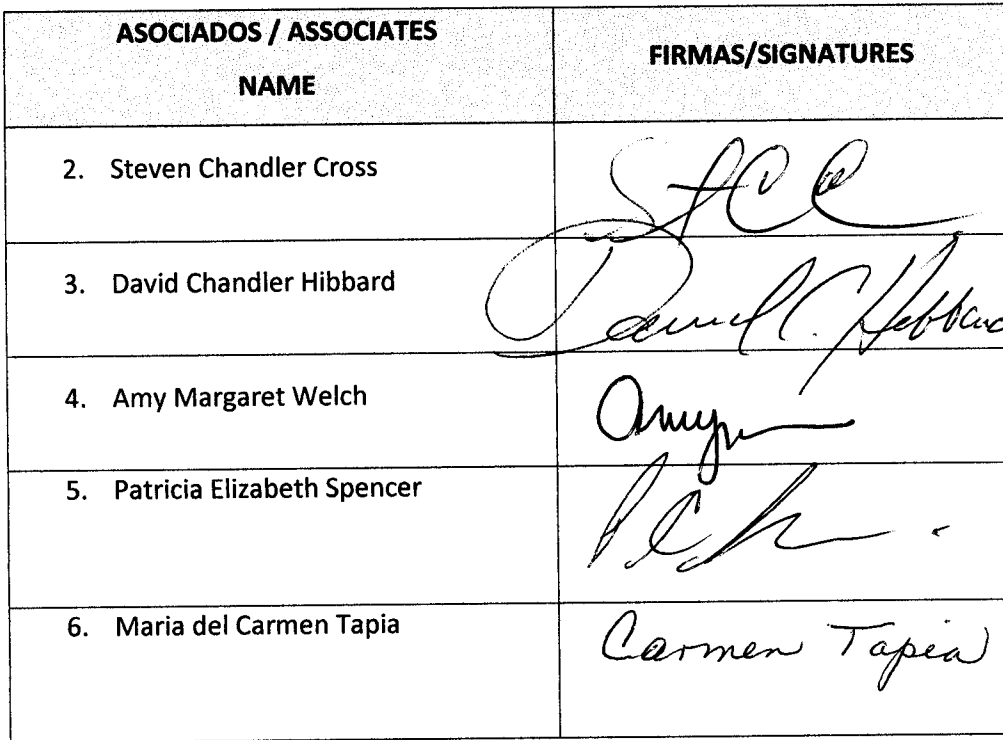 ASOCIADOS / ASSOCIATES
NAME
FIRMAS/SIGNATURES
2. Steven Chandler Cross
3. David Chandler Hibbard
David C. Hibbard
4. Amy Margaret Welch
Amy
5. Patricia Elizabeth Spencer
6. Maria del Carmen Tapia
Carmen Tapia